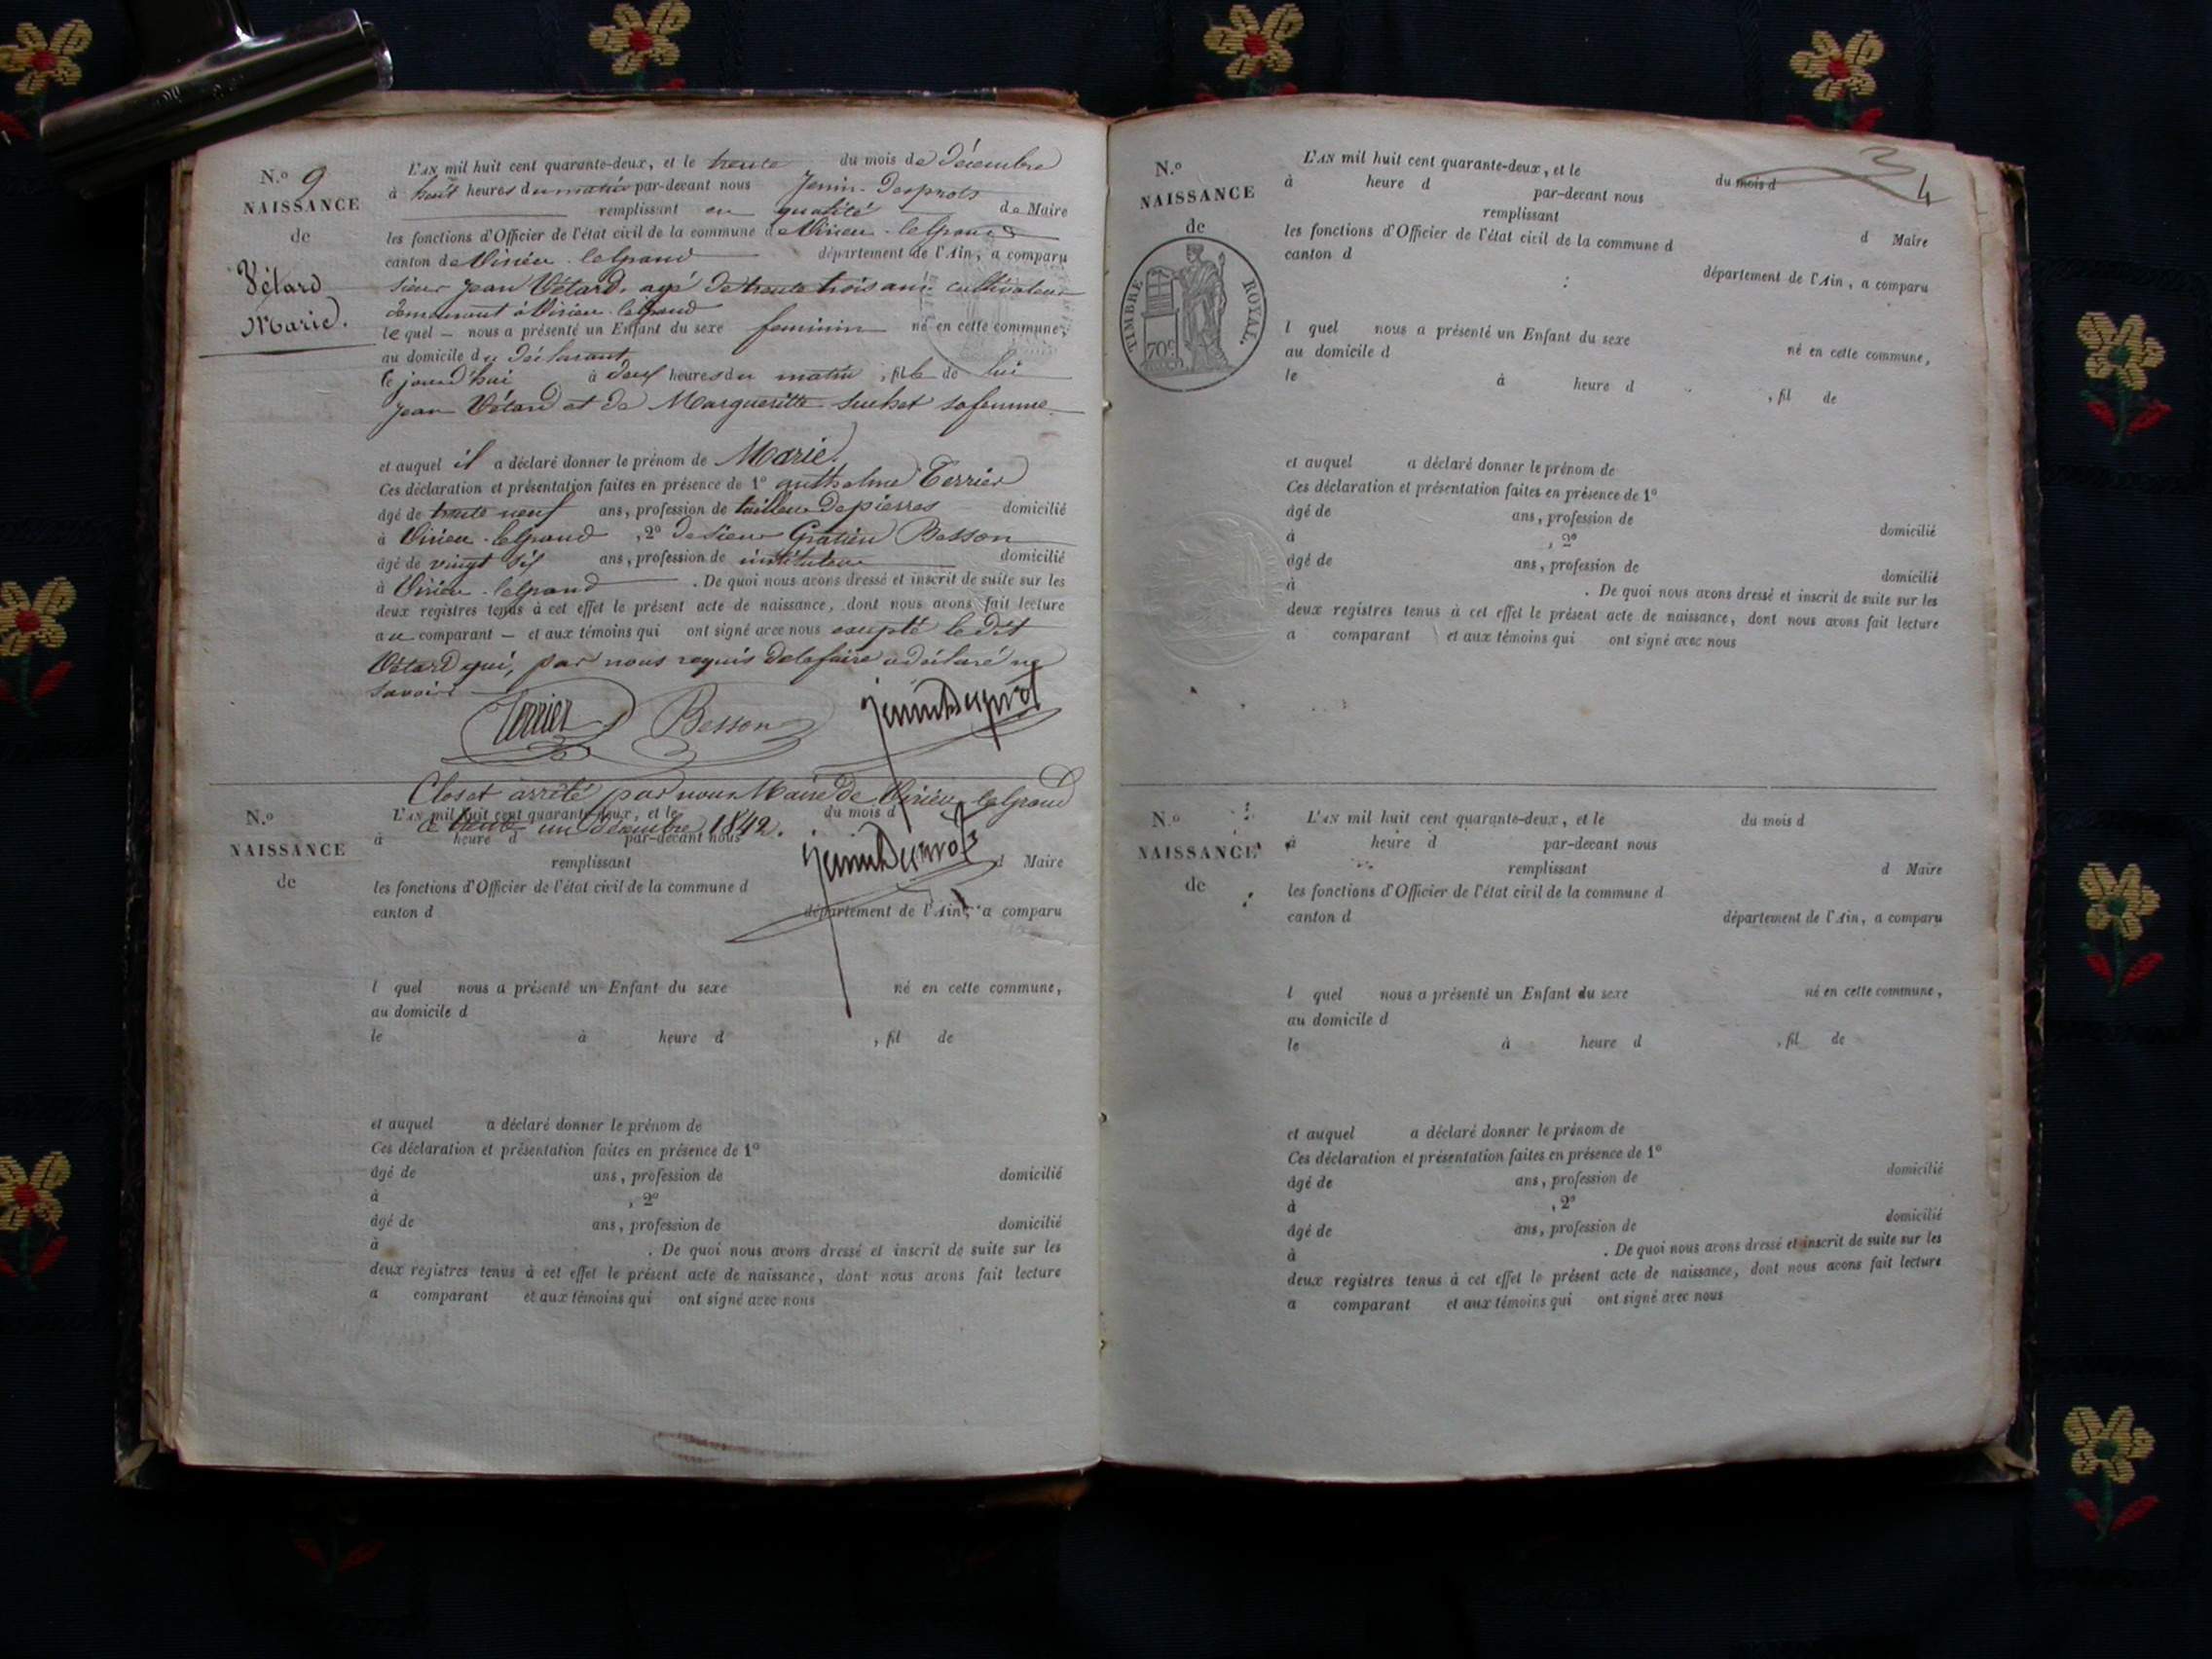 N.o 9
NAISSANCE
de
Vétard
Marie.
L'AN mil huit cent quarante-deux, et le trente du mois de Décembre
à huit heures du matin par-devant nous Jenin-Desprots
remplissant en qualité de Maire
les fonctions d'Officier de l'état civil de la commune de Virieu-leGrand
canton de Virieu-leGrand département de l'Ain, a comparu
Sieur Jean Vétard, agé de trente trois ans cultivateur
demeurant à Virieu-leGrand
le quel — nous a présenté un Enfant du sexe feminin né en cette commune,
au domicile du déclarant
le jourd'hui à deux heures du matin, fille de lui
Jean Vétard et de Margueritte Suchet sa femme
et auquel il a déclaré donner le prénom de Marie.
Ces déclaration et présentation faites en présence de 1o anthelme Terrier
âgé de trente neuf ans, profession de tailleur de pierres domicilié
à Virieu-leGrand, 2o de Sieur Gratien Besson
âgé de vingt six ans, profession de instituteur domicilié
à Virieu-leGrand. De quoi nous avons dressé et inscrit de suite sur les
deux registres tenus à cet effet le présent acte de naissance, dont nous avons fait lecture
au comparant — et aux témoins qui ont signé avec nous excepté le dit
Vétard qui, par nous requis de le faire a déclaré ne
savoir
Terrier Besson JeninDesprot
Clos et arrêté par nous Maire de Virieu-leGrand
ce trente un Décembre 1842.
JeninDesprot
N.o
NAISSANCE
de
L'AN mil huit cent quarante-deux, et le du mois d
à heure d par-devant nous
remplissant d Maire
les fonctions d'Officier de l'état civil de la commune d
canton d département de l'Ain, a comparu
l quel nous a présenté un Enfant du sexe né en cette commune,
au domicile d
le à heure d, fil de
et auquel a déclaré donner le prénom de
Ces déclaration et présentation faites en présence de 1o
âgé de ans, profession de domicilié
à, 2o
âgé de ans, profession de domicilié
à. De quoi nous avons dressé et inscrit de suite sur les
deux registres tenus à cet effet le présent acte de naissance, dont nous avons fait lecture
a comparant et aux témoins qui ont signé avec nous
3
4
N.o
NAISSANCE
de
TIMBRE ROYAL.
70c
L'AN mil huit cent quarante-deux, et le du mois d
à heure d par-devant nous
remplissant d Maire
les fonctions d'Officier de l'état civil de la commune d
canton d département de l'Ain, a comparu
l quel nous a présenté un Enfant du sexe né en cette commune,
au domicile d
le à heure d, fil de
et auquel a déclaré donner le prénom de
Ces déclaration et présentation faites en présence de 1o
âgé de ans, profession de domicilié
à, 2o
âgé de ans, profession de domicilié
à. De quoi nous avons dressé et inscrit de suite sur les
deux registres tenus à cet effet le présent acte de naissance, dont nous avons fait lecture
a comparant et aux témoins qui ont signé avec nous
N.o
NAISSANCE
de
L'AN mil huit cent quarante-deux, et le du mois d
à heure d par-devant nous
remplissant d Maire
les fonctions d'Officier de l'état civil de la commune d
canton d département de l'Ain, a comparu
l quel nous a présenté un Enfant du sexe né en cette commune,
au domicile d
le à heure d, fil de
et auquel a déclaré donner le prénom de
Ces déclaration et présentation faites en présence de 1o
âgé de ans, profession de domicilié
à, 2o
âgé de ans, profession de domicilié
à. De quoi nous avons dressé et inscrit de suite sur les
deux registres tenus à cet effet le présent acte de naissance, dont nous avons fait lecture
a comparant et aux témoins qui ont signé avec nous